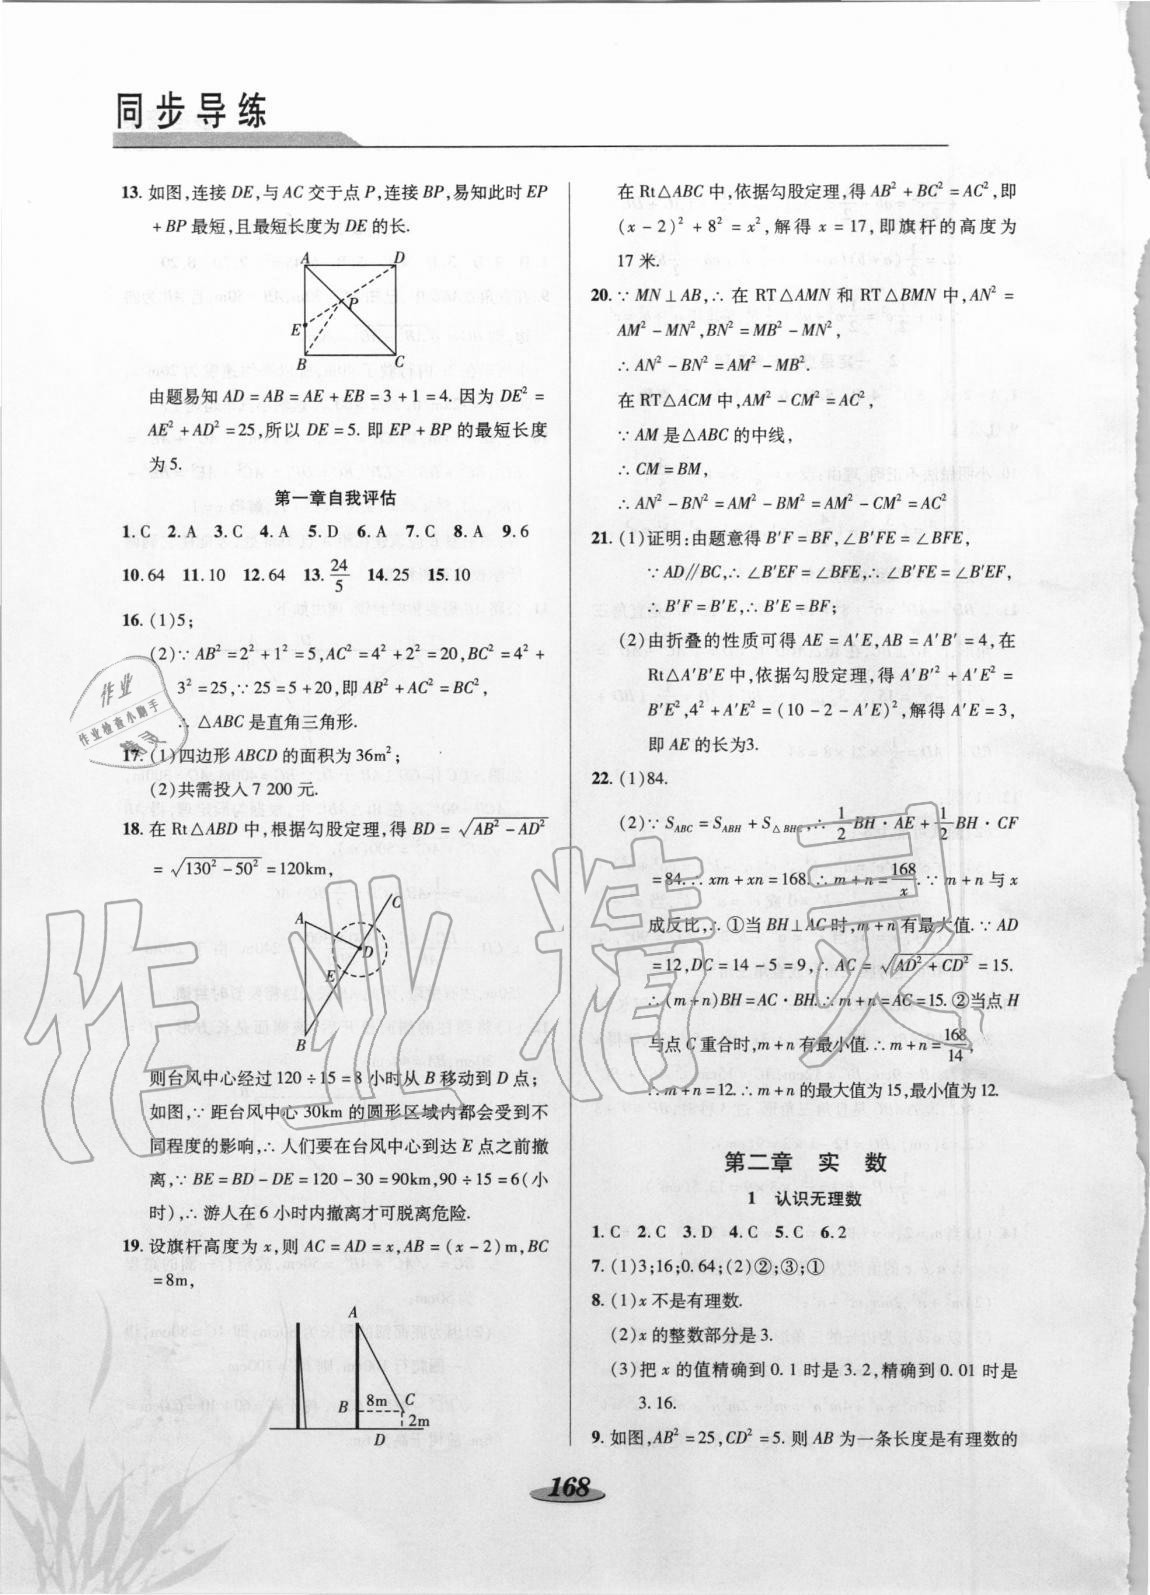 同步导练
13. 如图,连接 DE,与 AC 交于点 P,连接 BP,易知此时 EP
+ BP 最短,且最短长度为 DE 的长.
A D
P
E
B C
由题易知 AD = AB = AE + EB = 3 + 1 = 4. 因为 DE² =
AE² + AD² = 25,所以 DE = 5. 即 EP + BP 的最短长度
为 5.
第一章自我评估
1. C 2. A 3. C 4. A 5. D 6. A 7. C 8. A 9. 6
10. 64 11. 10 12. 64 13. 24/5 14. 25 15. 10
16. (1)5;
(2)∵ AB² = 2² + 1² = 5,AC² = 4² + 2² = 20,BC² = 4² +
3² = 25,∵ 25 = 5 + 20,即 AB² + AC² = BC²,
∴ △ABC 是直角三角形.
17. (1)四边形 ABCD 的面积为 36m²;
(2)共需投入 7 200 元.
18. 在 Rt△ABD 中,根据勾股定理,得 BD = √(AB² − AD²)
= √(130² − 50²) = 120km,
A C
D
E
B
则台风中心经过 120 ÷ 15 = 8 小时从 B 移动到 D 点;
如图,∵ 距台风中心 30km 的圆形区域内都会受到不
同程度的影响,∴ 人们要在台风中心到达 E 点之前撤
离,∵ BE = BD − DE = 120 − 30 = 90km,90 ÷ 15 = 6(小
时),∴ 游人在 6 小时内撤离才可脱离危险.
19. 设旗杆高度为 x,则 AC = AD = x,AB = (x − 2)m,BC
= 8m,
A
B 8m C
2m
D
在 Rt△ABC 中,依据勾股定理,得 AB² + BC² = AC²,即
(x − 2)² + 8² = x²,解得 x = 17,即旗杆的高度为
17 米.
20. ∵ MN⊥AB,∴ 在 RT△AMN 和 RT△BMN 中,AN² =
AM² − MN²,BN² = MB² − MN²,
∴ AN² − BN² = AM² − MB².
在 RT△ACM 中,AM² − CM² = AC²,
∵ AM 是△ABC 的中线,
∴ CM = BM,
∴ AN² − BN² = AM² − BM² = AM² − CM² = AC²
21. (1)证明:由题意得 B′F = BF,∠B′FE = ∠BFE,
∵ AD∥BC,∴ ∠B′EF = ∠BFE,∴ ∠B′FE = ∠B′EF,
∴ B′F = B′E,∴ B′E = BF;
(2)由折叠的性质可得 AE = A′E,AB = A′B′ = 4,在
Rt△A′B′E 中,依据勾股定理,得 A′B′² + A′E² =
B′E²,4² + A′E² = (10 − 2 − A′E)²,解得 A′E = 3,
即 AE 的长为3.
22. (1)84.
(2)∵ S_ABC = S_ABH + S_△BHC,∴ 1/2 BH · AE + 1/2 BH · CF
= 84. ∴ xm + xn = 168. ∴ m + n = 168/x. ∵ m + n 与 x
成反比,∴ ①当 BH⊥AC 时,m + n 有最大值. ∵ AD
= 12,DC = 14 − 5 = 9,∴ AC = √(AD² + CD²) = 15.
∴ (m + n)BH = AC · BH. ∴ m + n = AC = 15. ②当点 H
与点 C 重合时,m + n 有最小值. ∴ m + n = 168/14,
∴ m + n = 12. ∴ m + n 的最大值为 15,最小值为 12.
第二章 实 数
1 认识无理数
1. C 2. C 3. D 4. C 5. C 6. 2
7. (1)3;16;0.64;(2)②;③;①
8. (1)x 不是有理数.
(2)x 的整数部分是 3.
(3)把 x 的值精确到 0.1 时是 3.2,精确到 0.01 时是
3.16.
9. 如图,AB² = 25,CD² = 5. 则 AB 为一条长度是有理数的
168
作业
作业检查小助手
作业精灵